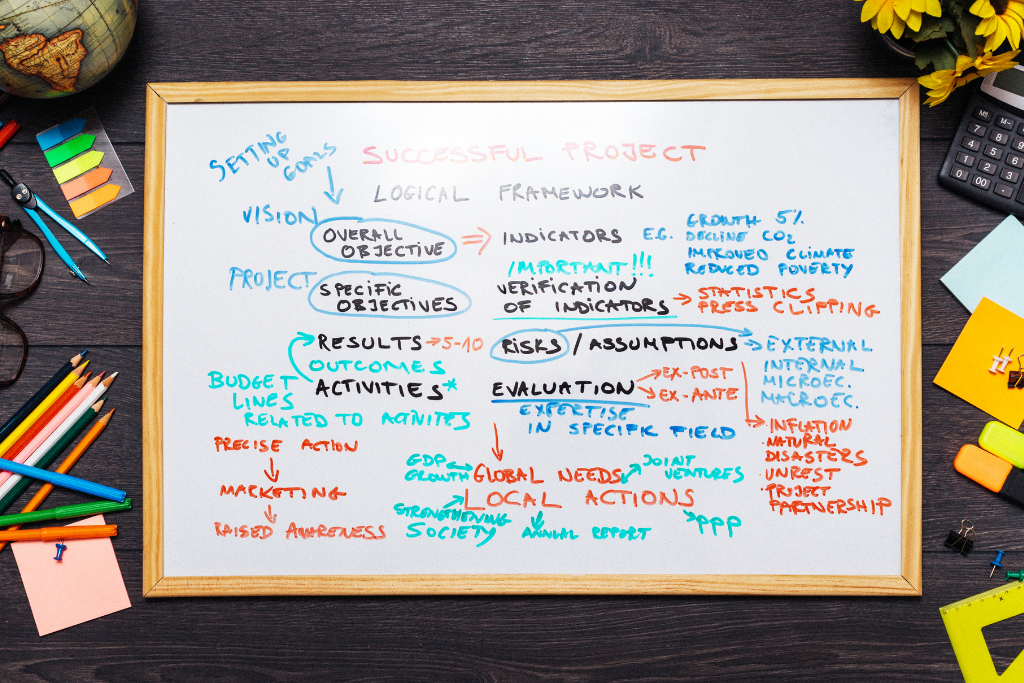 SETTING
UP
GOALS
SUCCESSFUL PROJECT
LOGICAL FRAMEWORK
VISION
OVERALL
OBJECTIVE
INDICATORS
E.G.
GROWTH 5%
DECLINE CO2
IMPROVED CLIMATE
REDUCED POVERTY
PROJECT
SPECIFIC
OBJECTIVES
IMPORTANT!!!
VERIFICATION
OF INDICATORS
STATISTICS
PRESS CLIPPING
RESULTS → 5-10
OUTCOMES
ACTIVITIES*
BUDGET
LINES
RELATED TO ACTIVITES
RISKS / ASSUMPTIONS
EXTERNAL
INTERNAL
MICROEC.
MACROEC.
EVALUATION
EX-POST
EX-ANTE
EXPERTISE
IN SPECIFIC FIELD
· INFLATION
· NATURAL
DISASTERS
· UNREST
· PROJECT
PARTNERSHIP
PRECISE ACTION
MARKETING
RAISED AWARENESS
GDP
GROWTH
GLOBAL NEEDS
LOCAL ACTIONS
JOINT
VENTURES
STRENGTHENING
SOCIETY
ANNUAL REPORT
PPP
M- M÷
7 8 9
4 5 6
1 2 3
0 00